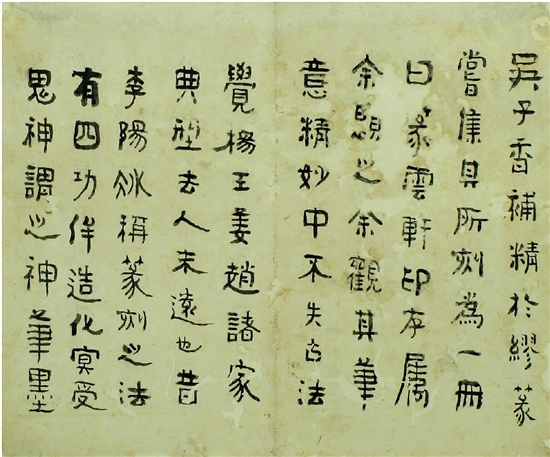 吳子香補精於繆篆
嘗集其所刻為一冊
曰篆雲軒印存属
余題之余觀其筆
意精妙中不失古法
覺楊王姜趙諸家
典型去人未遠也昔
李陽冰稱篆刻之法
有四功侔造化冥受
鬼神謂之神筆墨